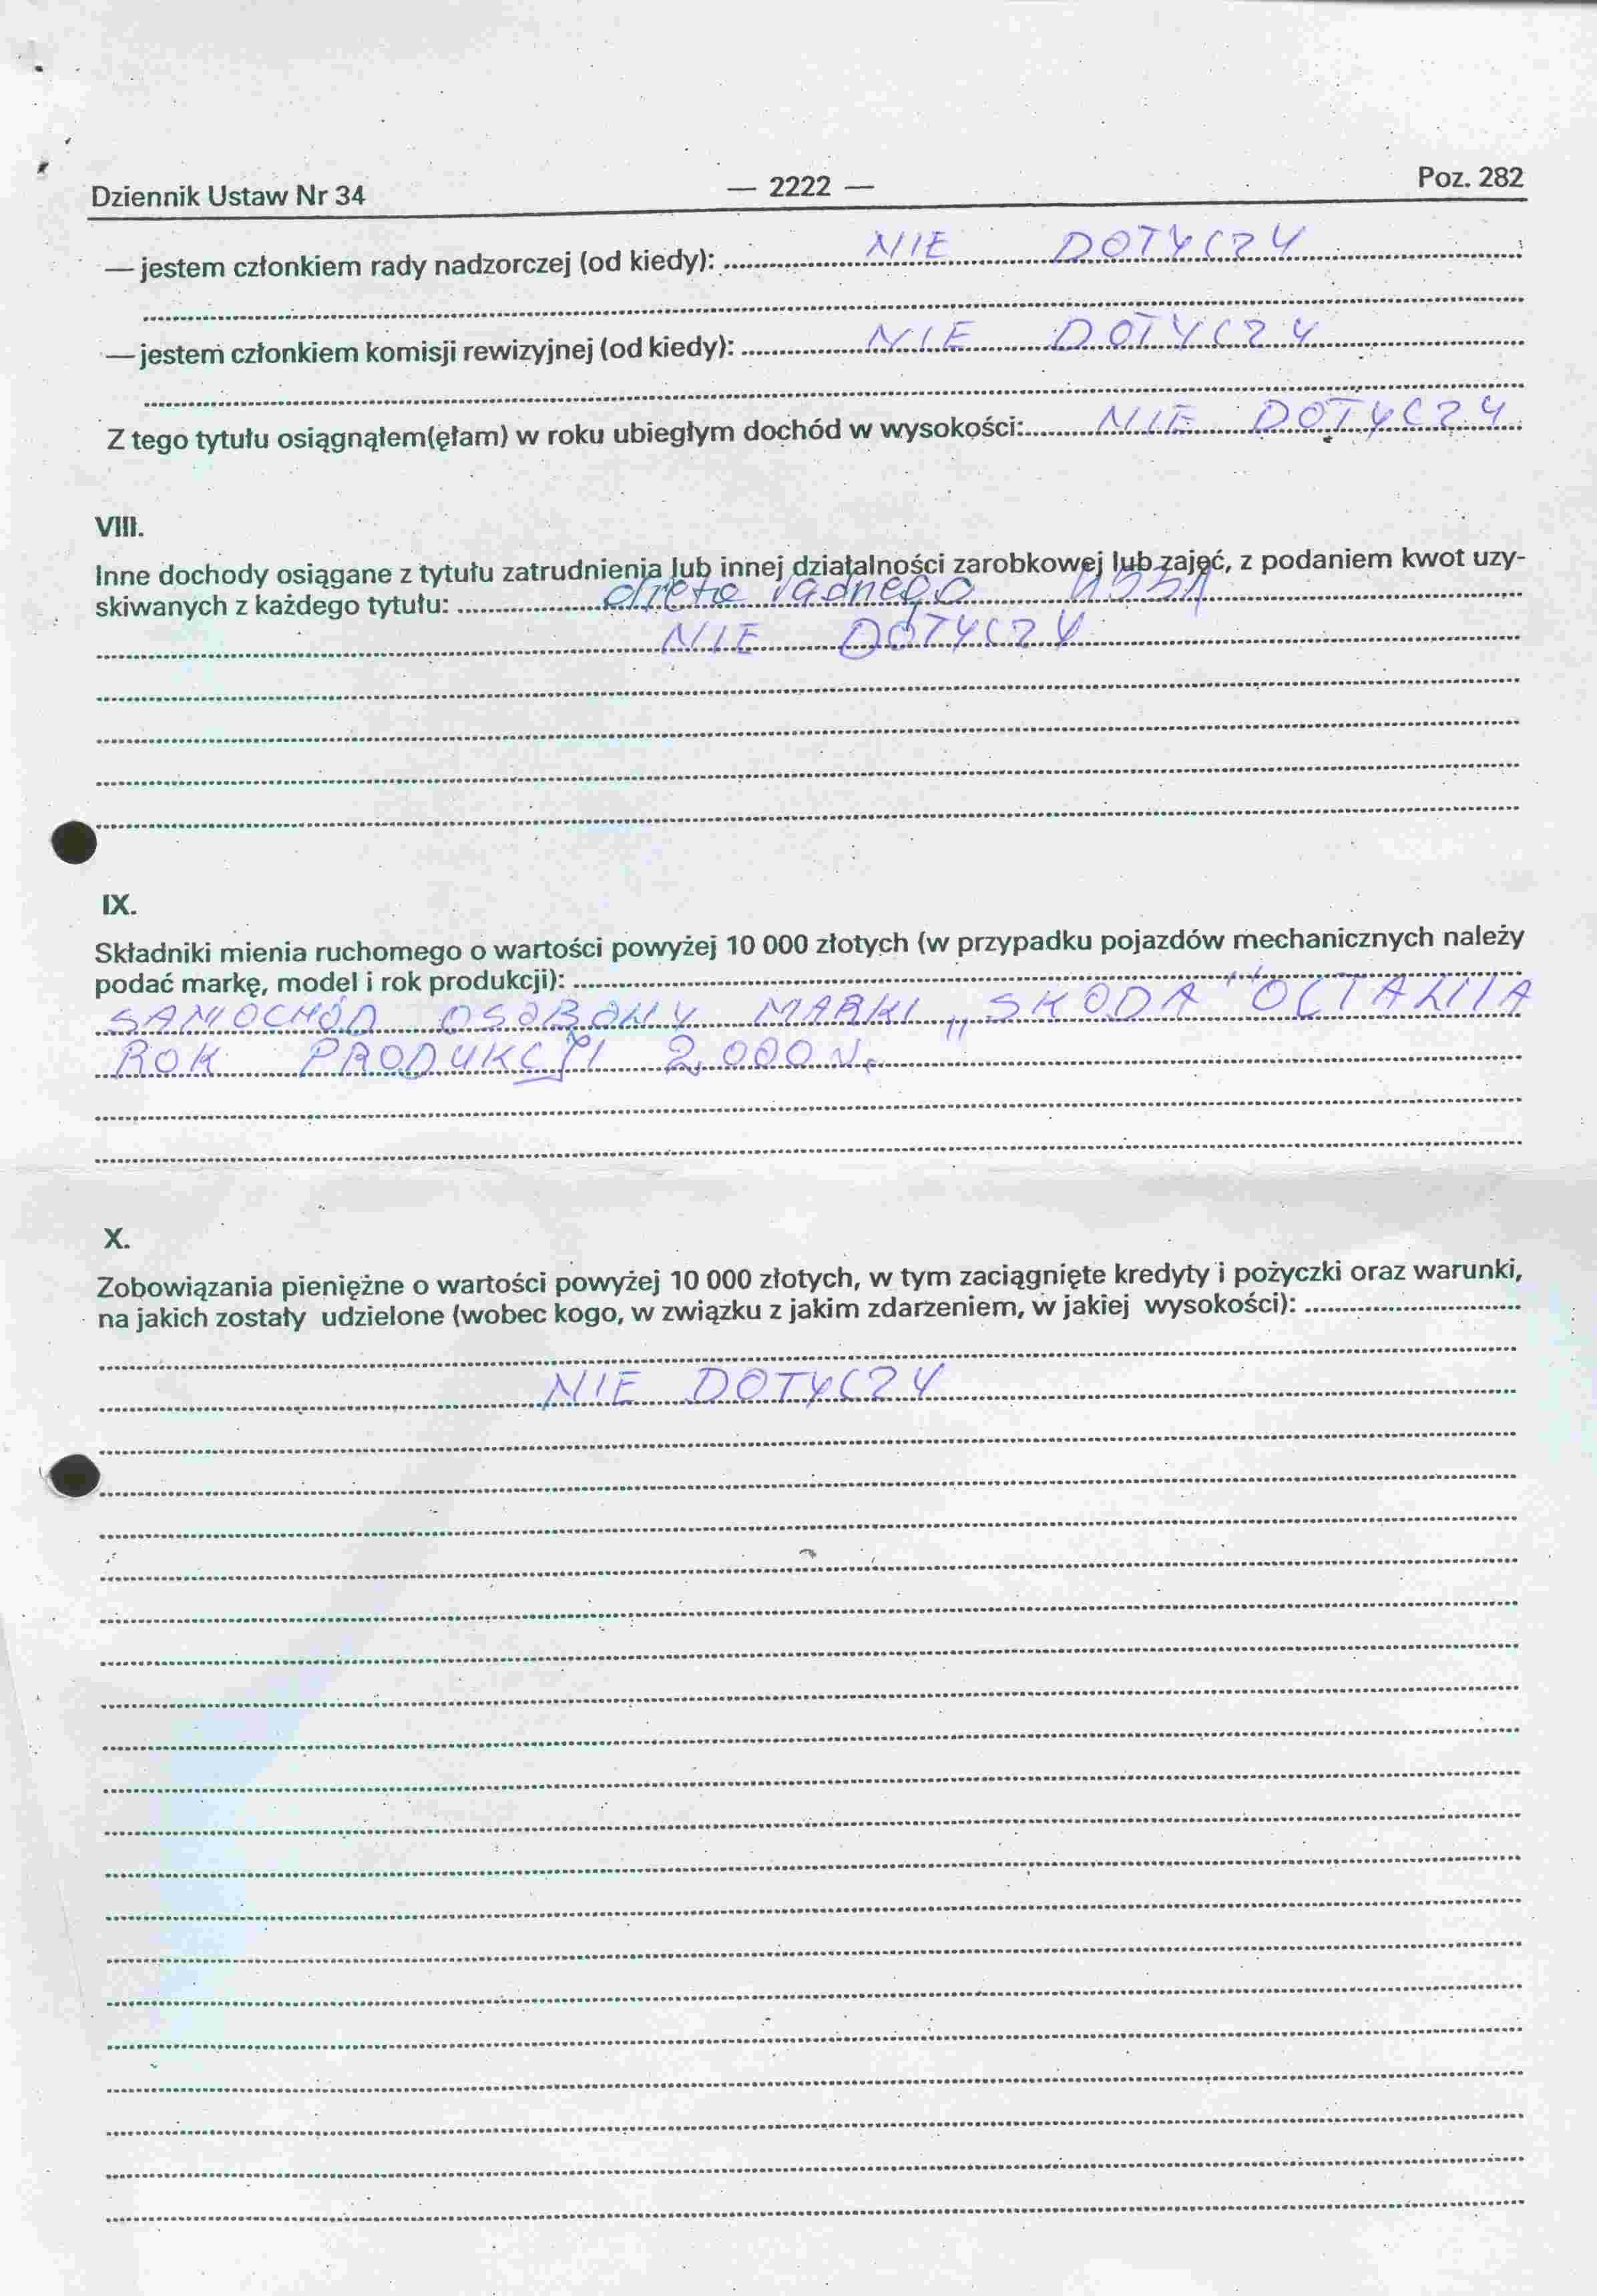 Dziennik Ustaw Nr 34 — 2222 — Poz. 282
— jestem członkiem rady nadzorczej (od kiedy): NIE DOTYCZY
— jestem członkiem komisji rewizyjnej (od kiedy): NIE DOTYCZY
Z tego tytułu osiągnąłem(ęłam) w roku ubiegłym dochód w wysokości: NIE DOTYCZY
VIII.
Inne dochody osiągane z tytułu zatrudnienia lub innej działalności zarobkowej lub zajęć, z podaniem kwot uzy-
skiwanych z każdego tytułu: dieta radnego
NIE DOTYCZY
IX.
Składniki mienia ruchomego o wartości powyżej 10 000 złotych (w przypadku pojazdów mechanicznych należy
podać markę, model i rok produkcji):
SAMOCHÓD OSOBOWY MARKI „SKODA" OCTAWIA
ROK PRODUKCJI 2.000 r.
X.
Zobowiązania pieniężne o wartości powyżej 10 000 złotych, w tym zaciągnięte kredyty i pożyczki oraz warunki,
na jakich zostały udzielone (wobec kogo, w związku z jakim zdarzeniem, w jakiej wysokości):
NIE DOTYCZY